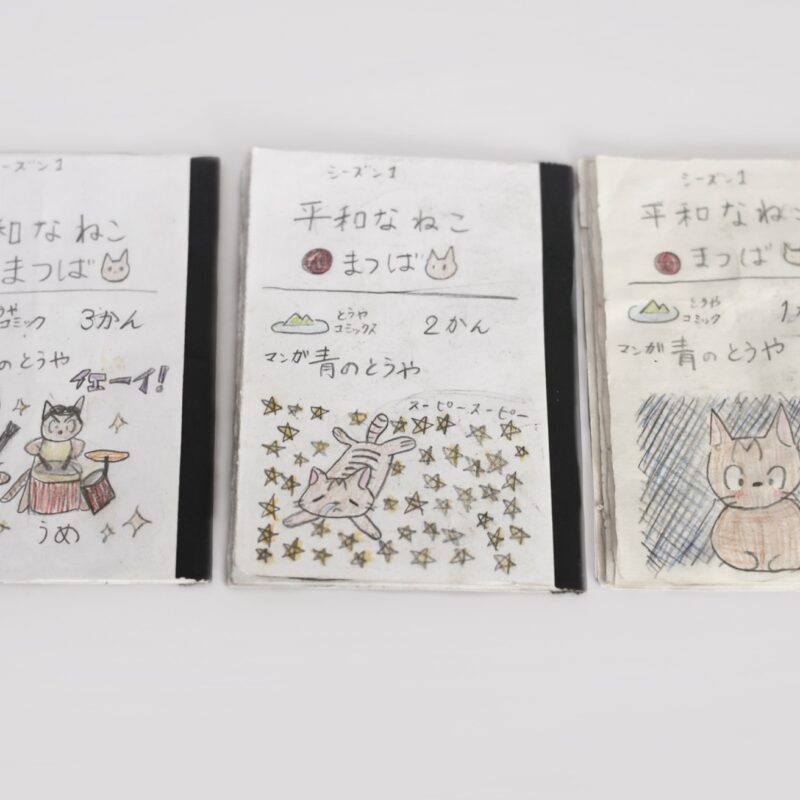 ーズン1
和なねこ
まつば
コミック 3かん
のとうや
チェーイ!
うめ
シーズン1
平和なねこ
まつば
とうや
コミックス
2かん
マンガ 青のとうや
スーピースーピー
シーズン1
平和なねこ
まつば
とうや
コミック
1
マンガ 青のとうや